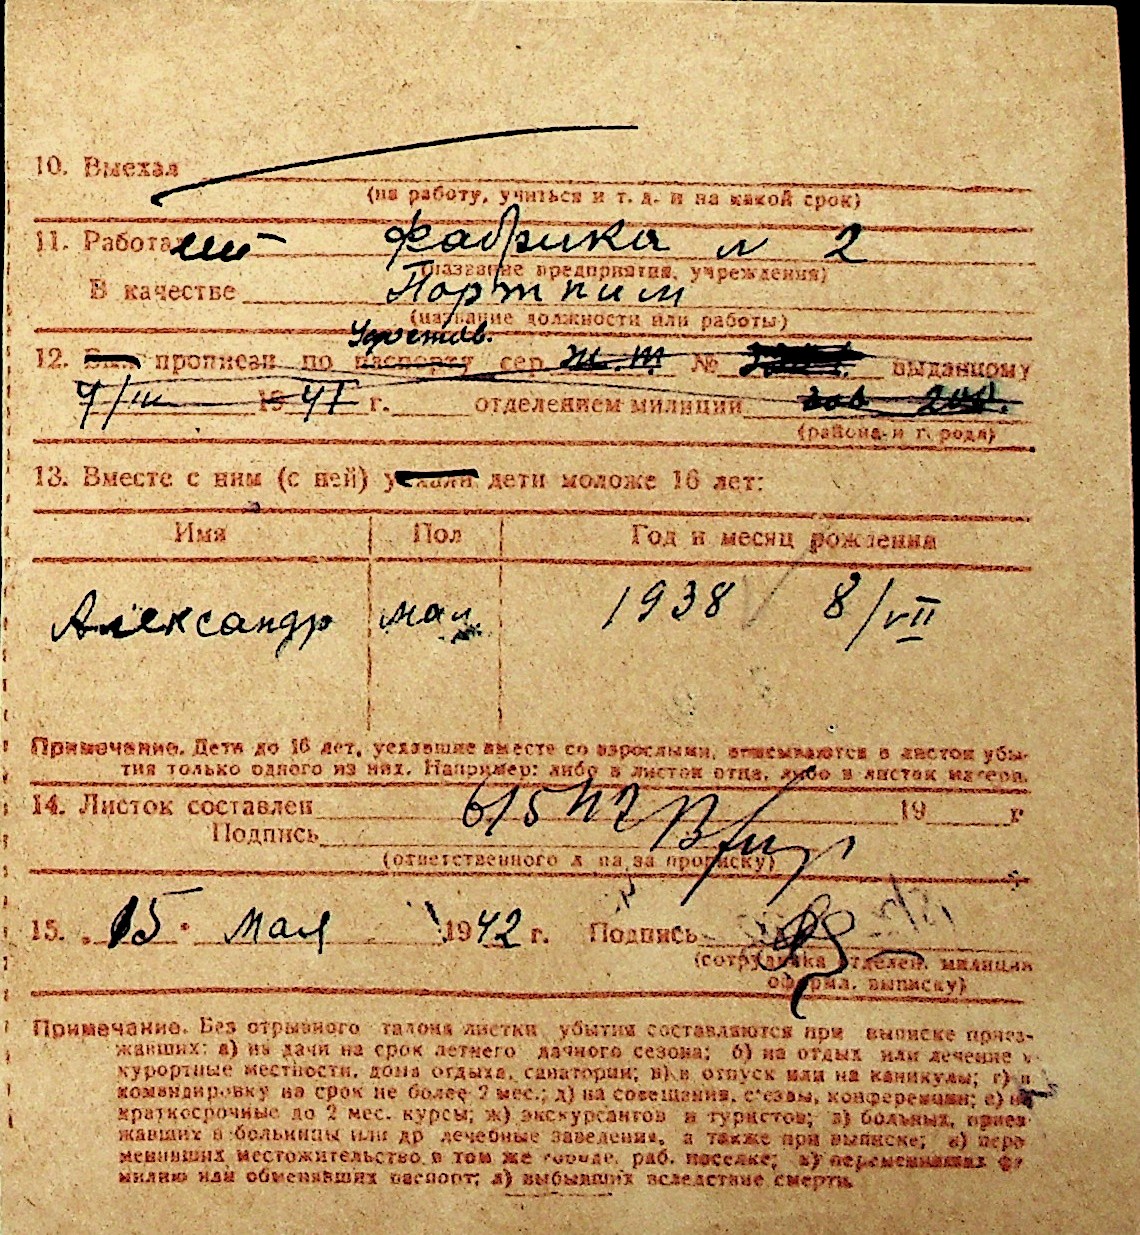 10. Выехал
(на работу, учиться и т. д. и на какой срок)
11. Работает фабрика № 2
(название предприятия, учреждения)
В качестве Портним
(название должности или работы)
Удостов.
12. прописан по паспорту сер. т.т. № выданному
9/III 1941 г. отделением милиции
(района и города)
13. Вместе с ним (с ней) уехали дети моложе 16 лет:
Имя Пол Год и месяц рождения
Александр мал 1938 8/VII
Примечание. Дети до 16 лет, уехавшие вместе со взрослыми, вписываются в листок убы-
тия только одного из них. Например: либо в листок отца, либо в листок матери.
14. Листок составлен 6/5 42 19 г
Подпись
(ответственного л ца за прописку)
15. „15" мая 1942 г. Подпись
(сотрудника отделен. милиции
оформл. выписку)
Примечание. Без отрывного талона листки убытия составляются при выписке приез-
жавших: а) на дачи на срок летнего дачного сезона; б) на отдых или лечение в
курортные местности, дома отдыха, санатории; в) в отпуск или на каникулы; г) в
командировку на срок не более 2 мес.; д) на совещания, съезды, конференции; е) на
краткосрочные до 2 мес. курсы; ж) экскурсантов и туристов; з) больных, приез-
жавших в больницы или др лечебные заведения, а также при выписке; и) пере
менивших местожительство в том же городе, раб. поселке; к) переменивших фа
милию или обменявших паспорт; л) выбывших вследствие смерти.